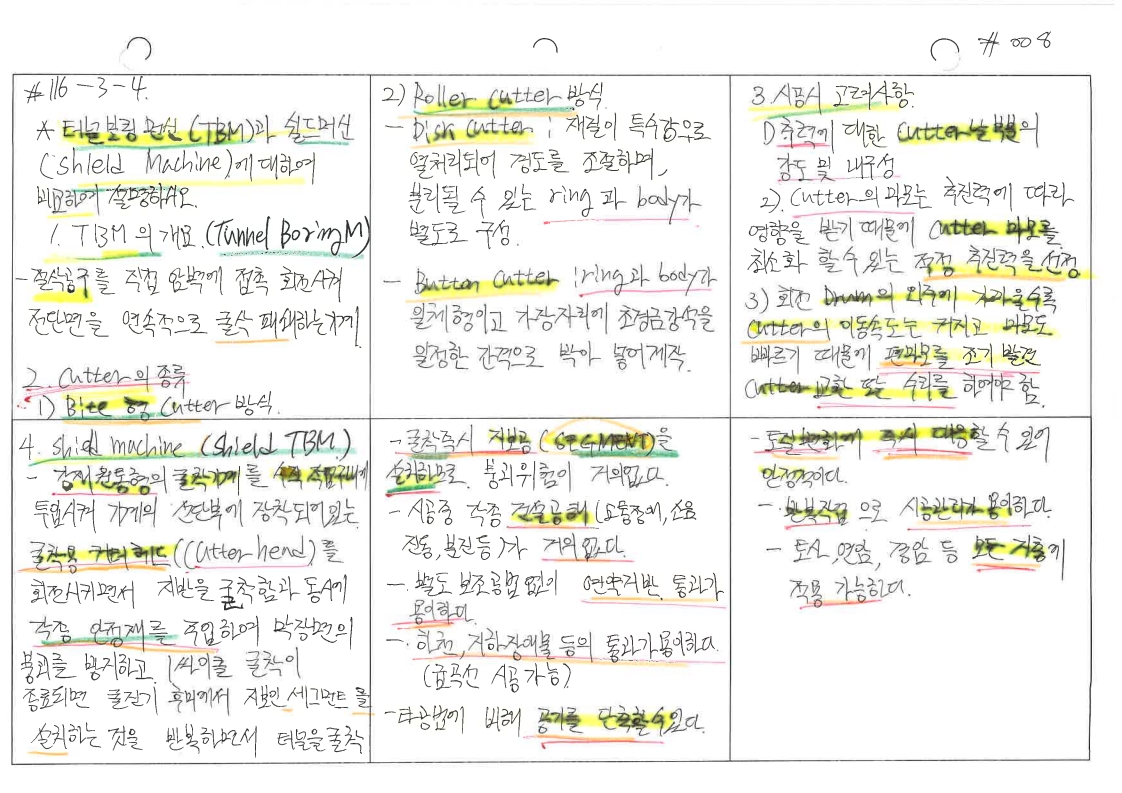 # 008
# 116-3-4.
* 터널보링머신(TBM)과 쉴드머신
(shield Machine)에 대하여
비교하여 설명하시오.
1. TBM의 개요 (Tunnel Boring M)
- 절삭공구를 직접 암벽에 접촉 회전시켜
전단면을 연속적으로 굴삭 파쇄하는기계
2. Cutter의 종류
1) Bite형 Cutter 방식.
2) Roller Cutter 방식.
- Dish Cutter : 재질이 특수강으로
열처리되어 경도를 조절하며,
분리될 수 있는 ring과 body가
별도로 구성.
- Button Cutter : ring과 body가
일체형이고 가장자리에 초경금강석을
일정한 간격으로 박아 넣어제작.
3. 시공시 고려사항.
1) 추력에 대한 Cutter날 부분의
강도 및 내구성
2). Cutter의 마모는 추진력에 따라
영향을 받기 때문에 Cutter 마모를
최소화 할 수 있는 적정 추진력을 선정
3) 회전 Drum의 외주에 가까울수록
Cutter의 이동속도는 커지고 마모도
빠르기 때문에 편마모를 조기 발견
Cutter 교환 또는 수리를 하여야 함.
4. shield machine (shield TBM.)
- 강재 원통형의 굴착기계를 수직 작업구내에
투입시켜 기계의 선단부에 장착되어있는
굴착용 커터헤드 (Cutter head)를
회전시키면서 지반을 굴착함과 동시에
각종 안정재를 주입하여 막장면의
붕괴를 방지하고 1싸이클 굴착이
종료되면 굴진기 후미에서 지보인 세그먼트를
설치하는 것을 반복하면서 터널을 굴착
- 굴착즉시 지보공 (SEGMENT)을
설치하므로 붕괴위험이 거의없다.
- 시공중 각종 건설공해 (교통장애, 소음
진동, 분진등)가 거의 없다.
- 별도 보조공법 없이 연약지반 통과가
용이하다.
- 하천, 지하장애물 등의 통과가 용이하다
(급곡선 시공가능)
- 타공법에 비해 공기를 단축할 수 있다.
- 토질변화에 즉시 대응할 수 있어
안정적이다.
- 반복작업으로 시공관리가 용이하다.
- 토사, 연암, 경암 등 모든 지층에
적용 가능하다.